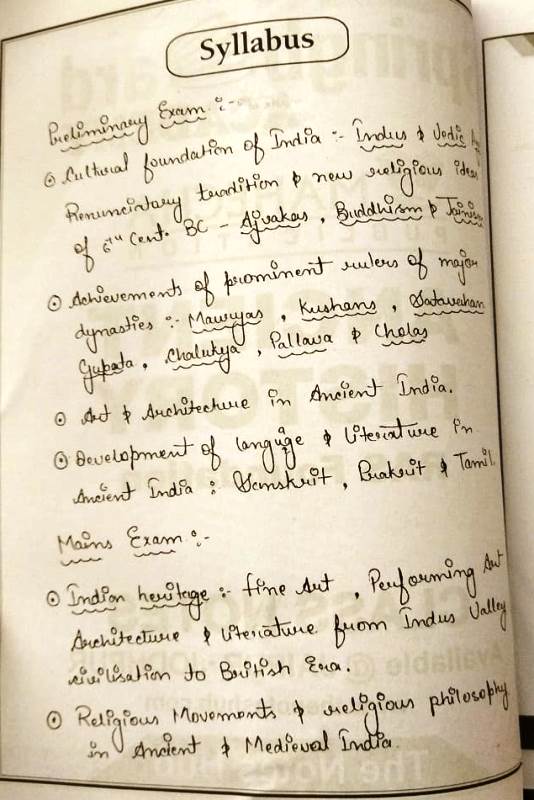 Syllabus
Preliminary Exam :-
⊙ Cultural foundation of India :- Indus & Vedic
Renunciatary tradition & new religious ideas
of 6th Cent. BC - Ajivakas, Buddhism & Jainism
⊙ Achievements of prominent rulers of major
dynasties :- Mauryas, Kushans, Satavahan
Gupata, Chalukya, Pallava & Cholas
⊙ Art & Architecture in Ancient India.
⊙ Development of language & literature in
Ancient India : Sanskrit, Prakrit & Tamil.
Mains Exam :-
⊙ Indian heritage :- fine Art, Performing Art
Architecture & literature from Indus Valley
civilisation to British Era.
⊙ Religious Movements & religious philosophy
in Ancient & Medieval India.